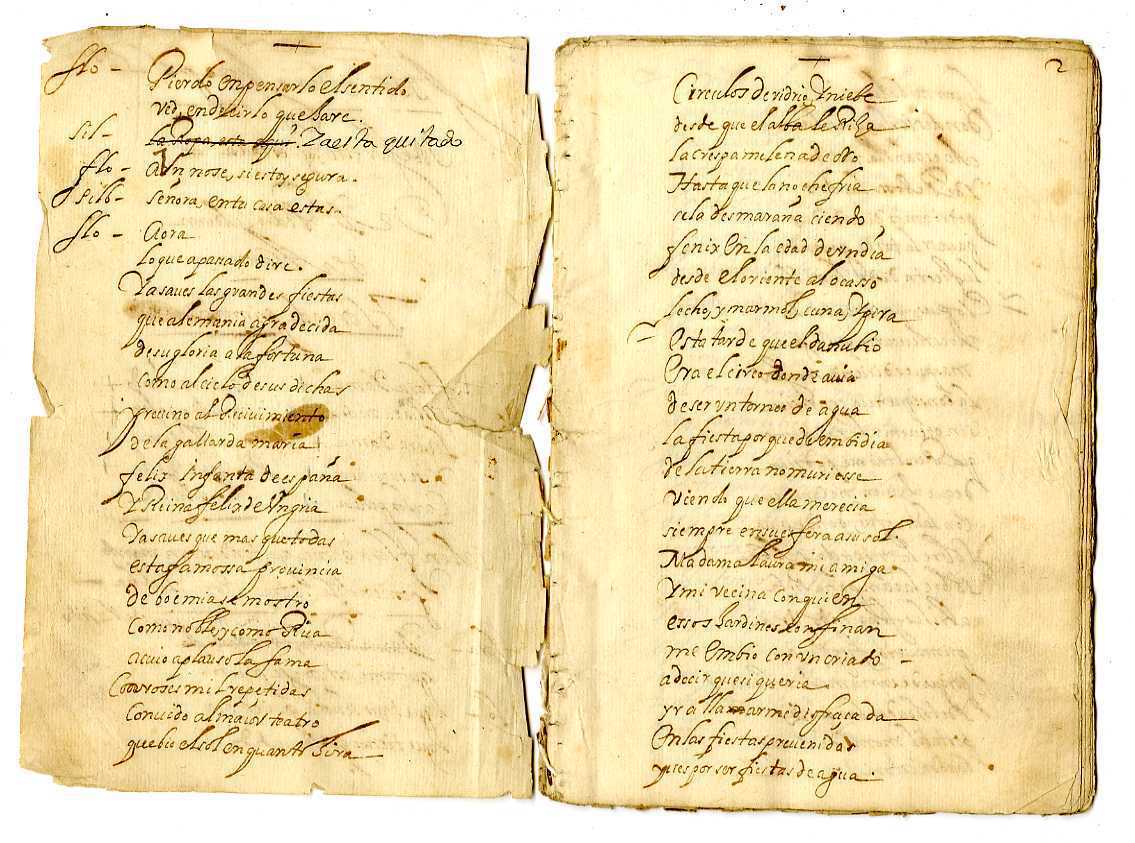 flo - Pierdo en pensarlo el sentido
ved, en decirlo que hare.
sil - la Ropa, esta aqui. Ya esta quitado
flo - aun no se, si estoy segura.
silb - señora, en tu casa estas.
flo - Aora
lo que a pasado dire.
Ya saues las grandes fiestas
que alemania agradecida
de su gloria a la fortuna
como al cielo de sus dichas
preuino al Recivimiento
de la gallarda maria
felix Infanta de españa
Y Reina felix de Vngria
Ya saues que mas que todas
esta famossa prouincia
de boemia se mostro
Como noble, y como Rica
a cuio aplauso la fama
Con voces mil repetidas
Conuido al maior teatro
que bio el sol en quanto Jira
2
Circulos de vidrio, Y niebe
desde que el alba le Riza
la crespa melena de oro
Hasta que la noche fria
se la desmaraña ciendo
fenix en la edad de vn dia
desde el oriente al ocasso
lecho, y marmol, cuna, Y pira
esta tarde que el danubio
Era el circo donde auia
de ser vn torneo de agua
la fiesta porque de embidia
de la tierra no muriesse
viendo que ella merecia
siempre en su esfera a su sol.
Madama laura mi amiga
Y mi vecina con quien
essos Jardines confinan
me embio con vn criado
a decir que si queria
yr a lla mar mi disfraçada
En las fiestas preuenidas
que por ser fiestas de agua.